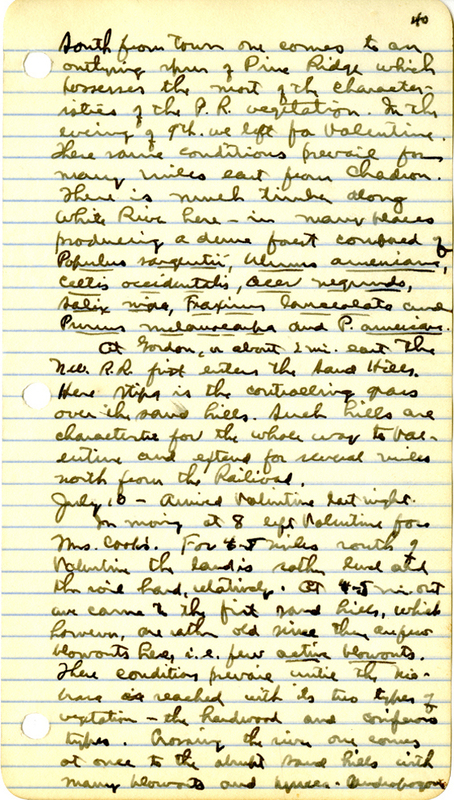 40
South from town one comes to an
outlying spur of Pine Ridge which
possesses the most of the character-
istics of the P. R. vegetation. In the
evening of 9th. we left for Valentine.
These same conditions prevail for
many miles east from Chadron.
There is much timber along
White River here – in many places
producing a dense forest composed of
Populus sargentii, Ulmus americana,
Celtis occidentalis, Acer negundo,
Salix nigra, Fraxinus lanceolata and
Prunus melanocarpa and P. americana.
At Gordon, or about 2 mi. east the
N.W. R.R. first enters the Sand Hills.
Here Stipa is the controlling grass
over the sand hills. Such hills are
characteristic for the whole way to Val-
entine and extend for several miles
north from the Railroad.
July 10 – Arrived Valentine last night.
In morning at 8 left Valentine for
Mrs. Cook's. For 4-5 miles south of
Valentine the land is rather level and
the soil hard, relatively. At 4-5 mi. out
we came to the first sand hills, which
however, are rather old since there are few
blowouts here, i.e. few active blowouts.
These conditions prevail until the Nio-
brara is reached with its two types of
vegetation – the hardwood and coniferous
types. Crossing the river one comes
at once to the abrupt sand hills with
many blowouts and Andropogon